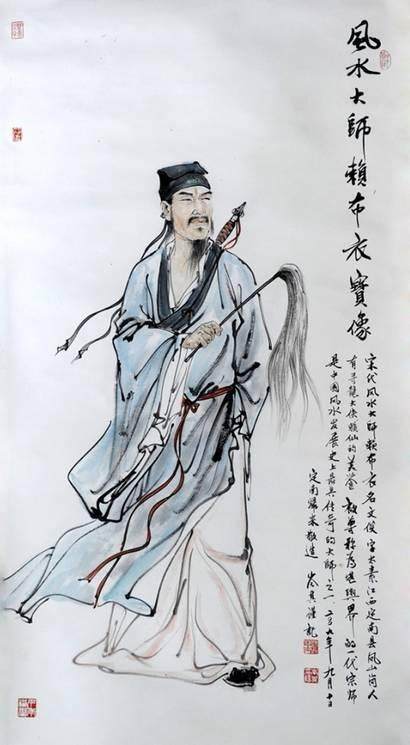 風水大師賴布衣寳像
宋代风水大师赖布衣名文俊字太素江西定南县凤山岗人
有寻龍大侠赖仙的美誉被尊称为堪舆界的一代宗师
是中国风水发展史上最具传奇的大师之一二〇〇九年九月十日
定南歸来敬造